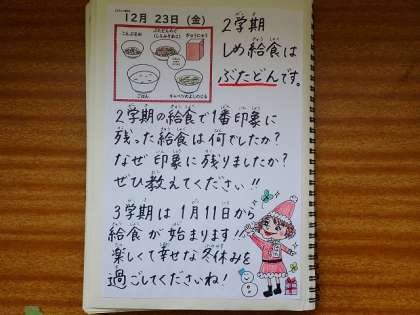 12月 23日(金)
こんぶまめ
ぶたどんのぐ
(しらたきいため)
ぎゅうにゅう
ごはん
キャベツのみそしる
2学期
しめ給食は
ぶたどんです。
2学期の給食で1番印象に
残った給食は何でしたか?
なぜ印象に残りましたか?
ぜひ教えてください!!
3学期は1月11日から
給食が始まります!!
楽しくて幸せな冬休みを
過ごしてくださいね!